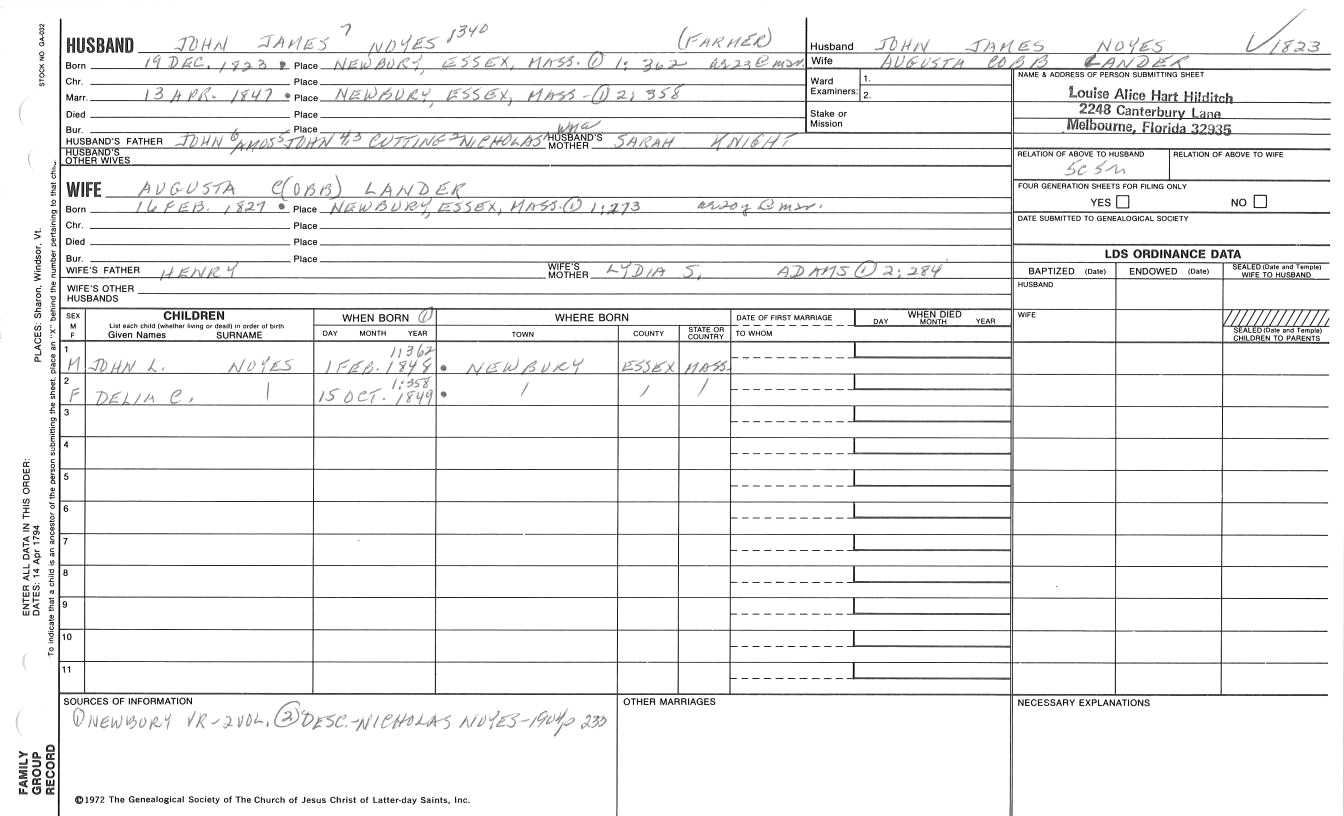 STOCK NO. GA-032
HUSBAND JOHN JAMES 7 NOYES 1340 (FARMER)
Born 19 DEC. 1823 Place NEWBURY, ESSEX, MASS. ① 1: 362
Chr. Place
Marr. 13 APR. 1847 Place NEWBURY, ESSEX, MASS - ① 2; 358
Died Place
Bur. Place
HUSBAND'S FATHER JOHN 6 AMOS 5 JOHN 4,3 CUTTING 2 NICHOLAS 1 HUSBAND'S MOTHER SARAH KNIGHT
HUSBAND'S OTHER WIVES
WIFE AUGUSTA C(OBB) LANDER
Born 16 FEB. 1827 Place NEWBURY, ESSEX, MASS. ① 1; 273
Chr. Place
Died Place
Bur. Place
WIFE'S FATHER HENRY WIFE'S MOTHER LYDIA S. ADAMS ① 2; 284
WIFE'S OTHER HUSBANDS
Husband JOHN JAMES NOYES 1823
Wife AUGUSTA COBB LANDER
Ward Examiners: 1.
2.
Stake or Mission
NAME & ADDRESS OF PERSON SUBMITTING SHEET
Louise Alice Hart Hilditch
2248 Canterbury Lane
Melbourne, Florida 32935
RELATION OF ABOVE TO HUSBAND RELATION OF ABOVE TO WIFE
FOUR GENERATION SHEETS FOR FILING ONLY
YES NO
DATE SUBMITTED TO GENEALOGICAL SOCIETY
LDS ORDINANCE DATA
BAPTIZED (Date) ENDOWED (Date) SEALED (Date and Temple) WIFE TO HUSBAND
HUSBAND
WIFE
SEALED (Date and Temple) CHILDREN TO PARENTS
SEX M F
CHILDREN
List each child (whether living or dead) in order of birth
Given Names SURNAME
WHEN BORN ①
DAY MONTH YEAR
WHERE BORN
TOWN COUNTY STATE OR COUNTRY
DATE OF FIRST MARRIAGE
TO WHOM
WHEN DIED
DAY MONTH YEAR
1 1; 362
M JOHN L. NOYES 1 FEB. 1848 NEWBURY ESSEX MASS.
2 1:358
F DELIA C. 15 OCT. 1849
3
4
5
6
7
8
9
10
11
SOURCES OF INFORMATION
① NEWBURY VR-2VOL. ② DESC.-NICHOLAS NOYES-1904p 230
OTHER MARRIAGES
NECESSARY EXPLANATIONS
©1972 The Genealogical Society of The Church of Jesus Christ of Latter-day Saints, Inc.
ENTER ALL DATA IN THIS ORDER:
DATES: 14 Apr 1794
PLACES: Sharon, Windsor, Vt.
To indicate that a child is an ancestor of the person submitting the sheet, place an "X" behind the number pertaining to that
FAMILY GROUP RECORD